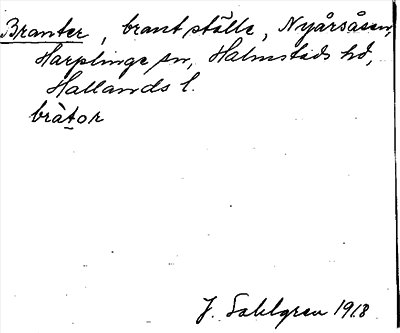 Branter, brant ställe, Nyårsåsen,
Harplinge sn, Halmstads hd,
Hallands l.
bràtor
J. Sahlgren 1918